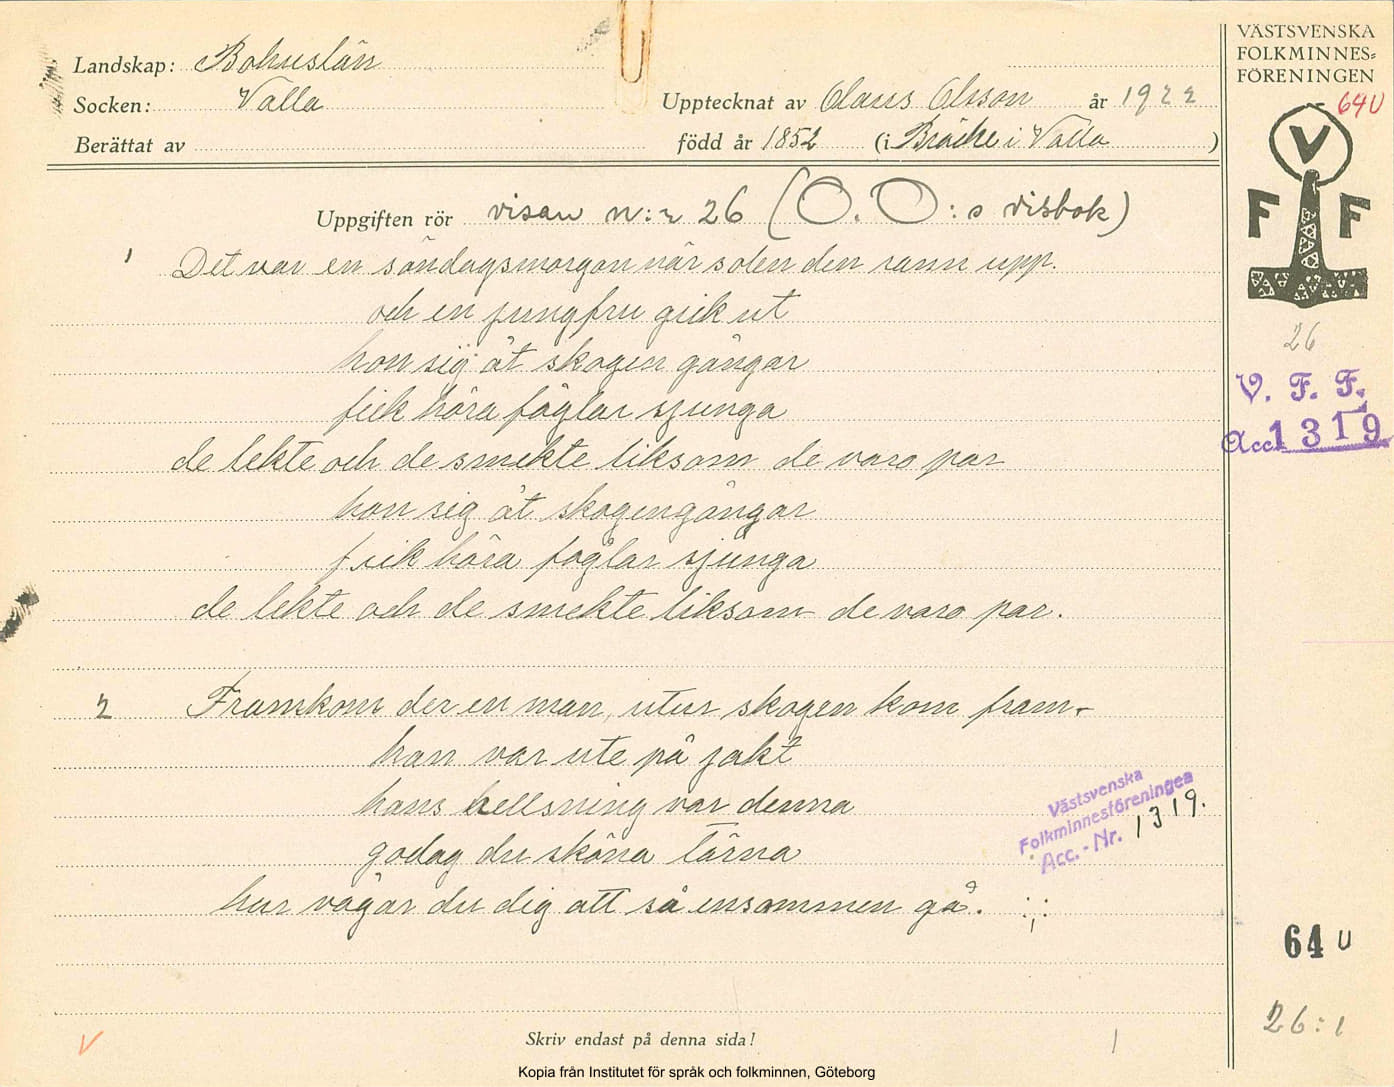 Landskap: Bohuslän
Socken: Valla
Berättat av
Upptecknat av Olaus Olsson år 1922
född år 1852 (i Bräcke i Valla )
VÄSTSVENSKA
FOLKMINNES=
FÖRENINGEN
64U
V
F F
26
V. F. F.
Acc 1319
Uppgiften rör visan n:r 26 (O. O:s visbok)
1 Det var en söndagsmorgon när solen den rann upp.
och en jungfru gick ut
hon sig åt skogen gångar
fick höra foglar sjunga
de lekte och de smekte liksom de varo par
hon sig åt skogen gångar
fick höra foglar sjunga
de lekte och de smekte liksom de varo par.
2 Framkom der en man, utur skogen kom fram
han var ute på jakt
hans hellsning var denna
godag du sköna tärna
hur vågar du dig att så ensammen gå. :,:
Västsvenska
Folkminnesföreningen
Acc.-Nr. 1319.
64 U
26:1
V
Skriv endast på denna sida!
1
Kopia från Institutet för språk och folkminnen, Göteborg